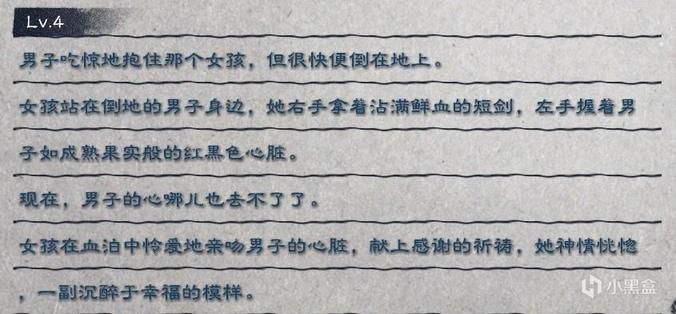 Lv.4
男子吃惊地抱住那个女孩，但很快便倒在地上。
女孩站在倒地的男子身边，她右手拿着沾满鲜血的短剑，左手握着男
子如成熟果实般的红黑色心脏。
现在，男子的心哪儿也去不了了。
女孩在血泊中怜爱地亲吻男子的心脏，献上感谢的祈祷，她神情恍惚
，一副沉醉于幸福的模样。
小黑盒